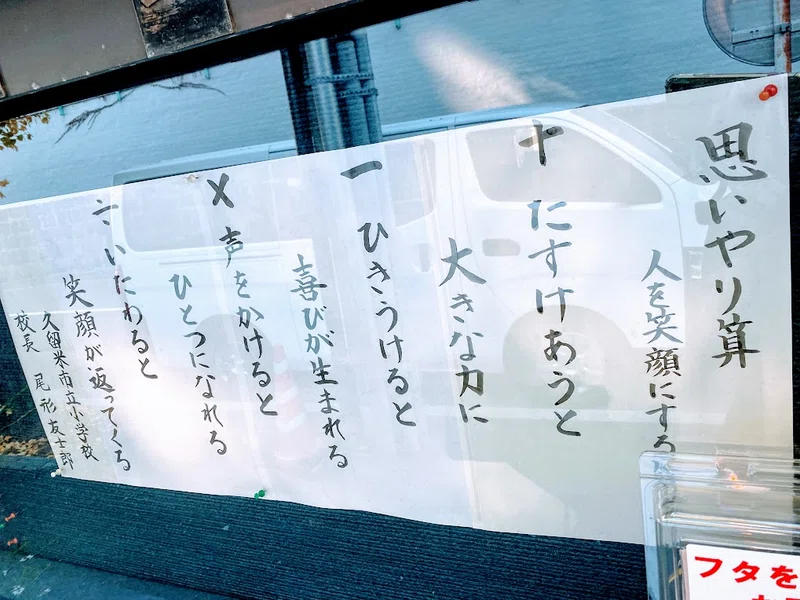 思いやり算
人を笑顔にする
＋ たすけあうと
大きな力に
－ ひきうけると
喜びが生まれる
× 声をかけると
ひとつになれる
÷ いたわると
笑顔が返ってくる
久留米市立小学校
校長 尾形友士郎
フタを